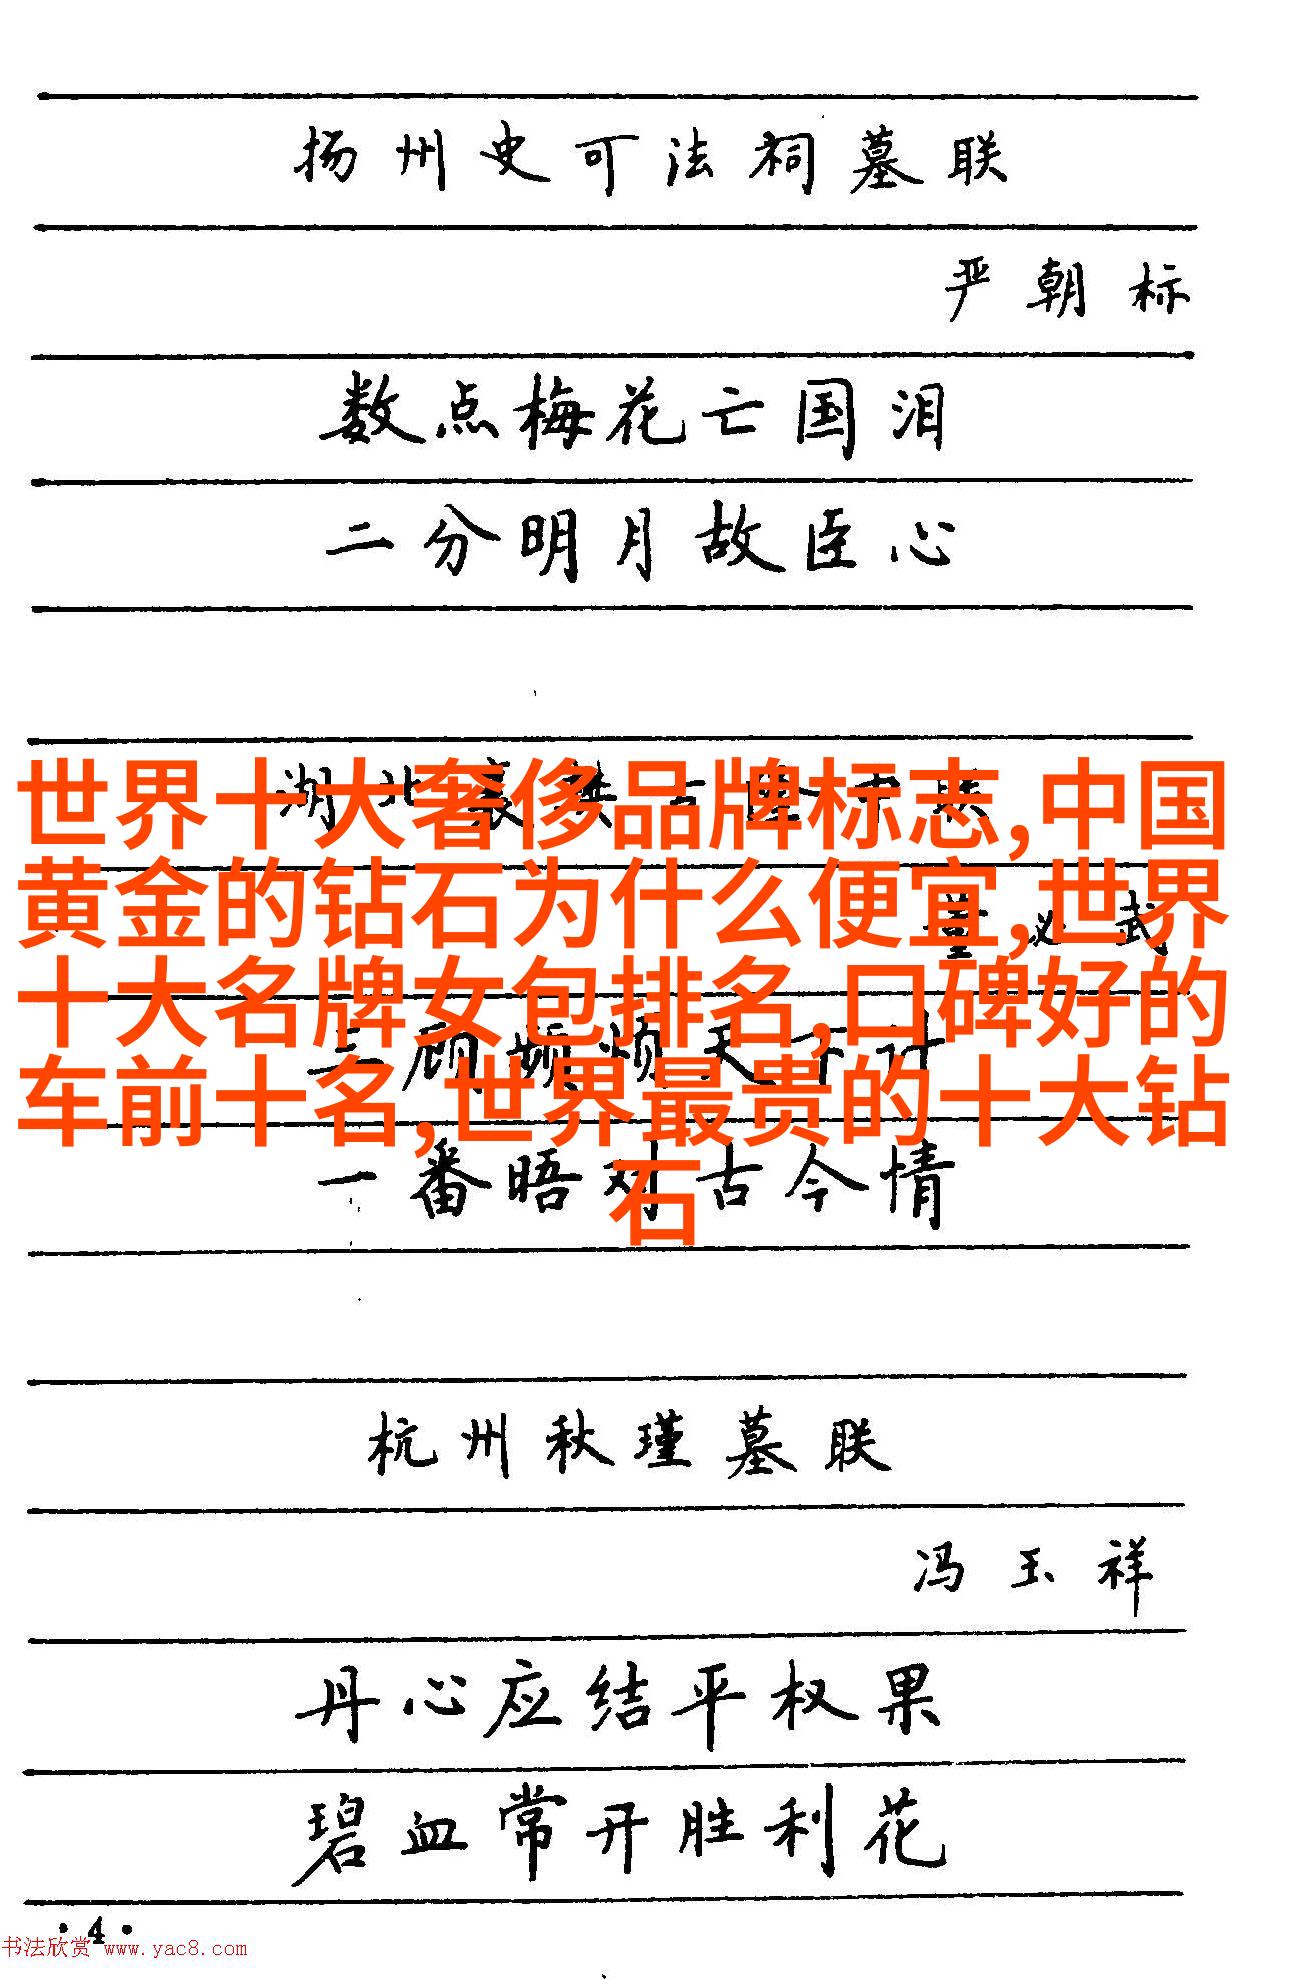 扬州史可法祠墓联
严朝标
数点梅花亡国泪
二分明月故臣心
世界十大奢侈品牌标志,中国
黄金的钻石为什么便宜,世界
十大名牌女包排名,口碑好的
车前十名,世界最贵的十大钻
石
董必武
三顾频烦天下计
一番晤对古今情
杭州秋瑾墓联
冯玉祥
丹心应结平权果
碧血常开胜利花
·4·
书法欣赏 www.yac8.com